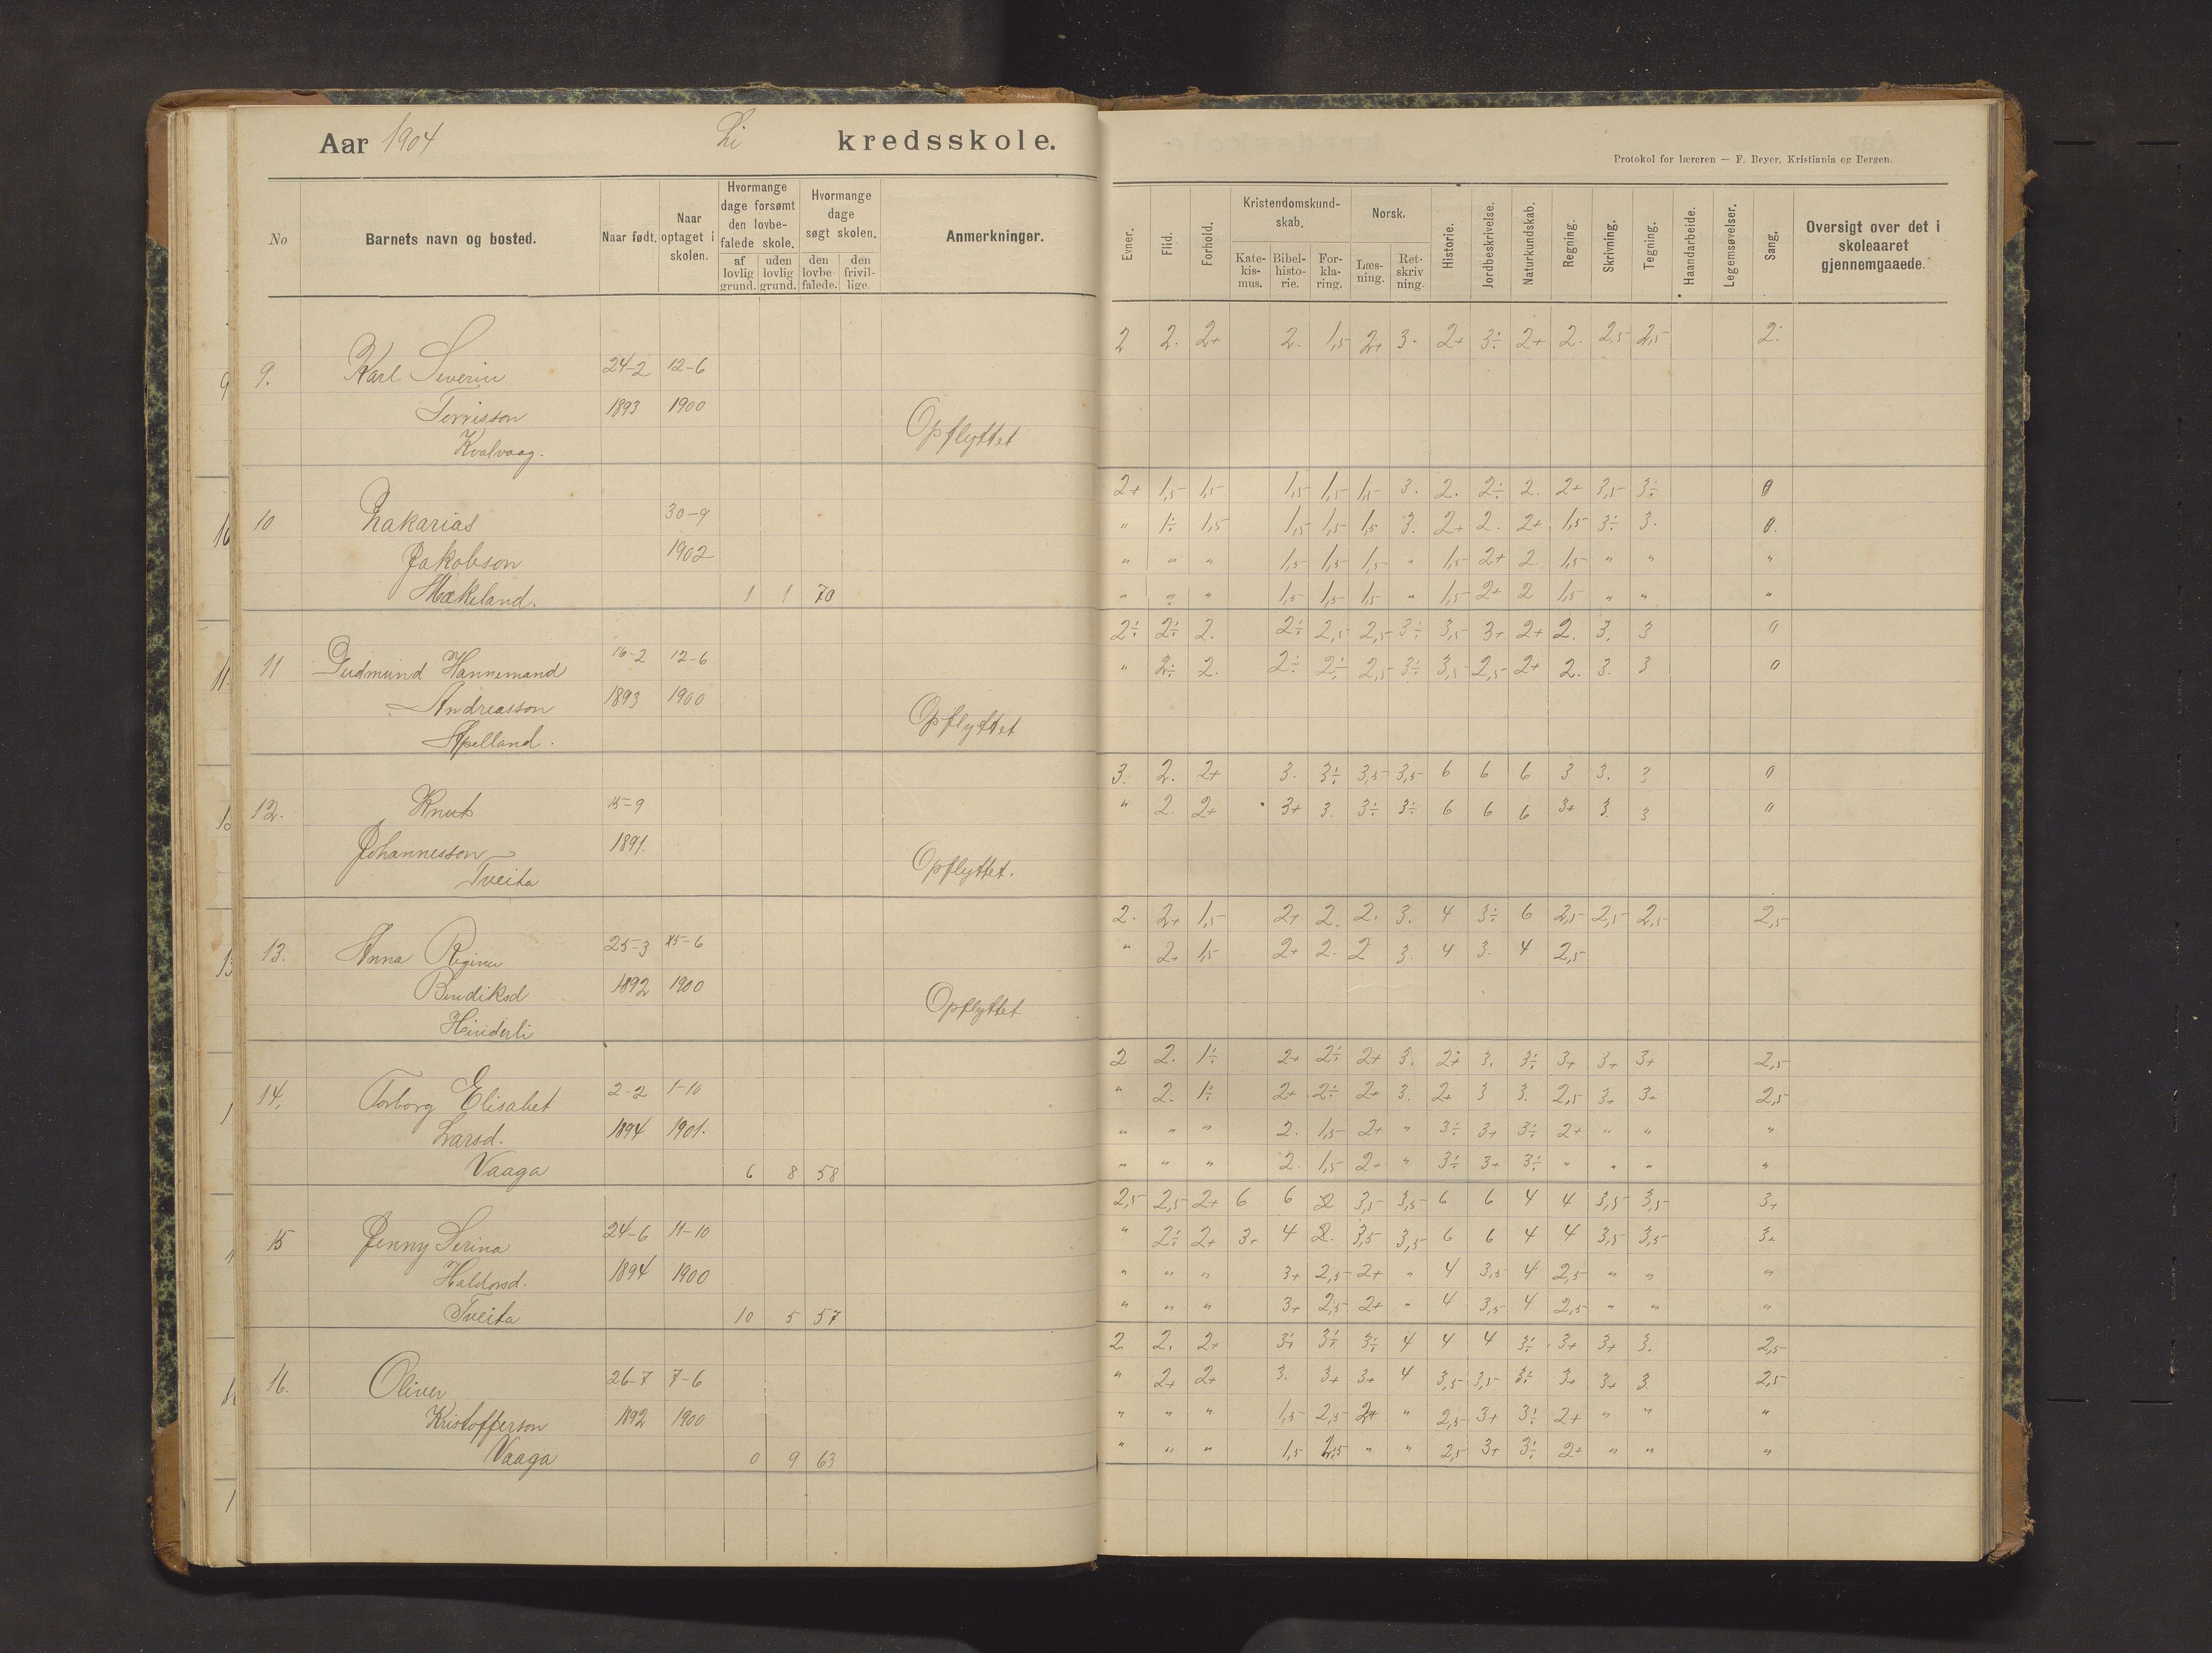 Aar 1904 Li kredsskole.
Protokol for læreren — F. Beyer, Kristiania og Bergen.
No Barnets navn og bosted. Naar født. Naar optaget i skolen. Hvormange dage forsømt den lovbefalede skole. af lovlig grund. uden lovlig grund. Hvormange dage søgt skolen. den lovbefalede. den frivillige. Anmerkninger.
Evner. Flid. Forhold. Kristendomskundskab. Katekismus. Bibelhistorie. Forklaring. Norsk. Læsning. Retskrivning. Historie. Jordbeskrivelse. Naturkundskab. Regning. Skrivning. Tegning. Haandarbeide. Legemsøvelser. Sang. Oversigt over det i skoleaaret gjennemgaaede.
2 2. 2+ 2. 1,5 2+ 3. 2+ 3÷ 2+ 2. 2,5 2,5 2.
9. Karl Severin 24-2 12-6
Tørrisson 1893 1900
Kvalvaag. Opflyttet
2+ 1,5 1,5 1,5 1,5 1,5 3. 2. 2÷ 2. 2+ 3,5 3÷ 0
10 Zakarias 30-9 " 1÷ 1,5 1,5 1,5 1,5 3. 2+ 2. 2+ 1,5 3÷ 3. 0.
Jakobson 1902 " " " 1,5 1,5 1,5 " 1,5 2+ 2 1,5 " " "
Mækeland. 1 1 70 " " " 1,5 1,5 1,5 " 1,5 2+ 2 1,5 " " "
2÷ 2÷ 2. 2÷ 2,5 2,5 3÷ 3,5 3+ 2+ 2. 3. 3 0
11 Gudmund Hannemand 16-2 12-6 " 2÷ 2. 2÷ 2÷ 2,5 3÷ 3,5 2,5 2+ 2. 3. 3 0
Andreasson 1893 1900
Apelland. Opflyttet
3. 2. 2+ 3. 3÷ 3,5 3,5 6 6 6 3 3. 3 0
12. Knut 15-9 " 2. 2+ 3+ 3. 3÷ 3÷ 6 6 6 3+ 3. 3 0
Johannesson 1891.
Tveita Opflyttet.
2. 2+ 1,5 2+ 2. 2. 3. 4 3÷ 6 2,5 2,5 2,5 2,5
13. Anna Regine 25-3 15-6 " 2+ 1,5 2+ 2. 2 3. 4 3. 4 2,5
Bendiksd 1892 1900
Hinderli Opflyttet
2 2. 1÷ 2+ 2÷ 2+ 3. 2+ 3. 3÷ 3+ 3+ 3+ 2,5
14. Torborg Elisabet 2-2 1-10 " 2. 1÷ 2+ 2÷ 2+ 3. 2+ 3 3. 2,5 3+ 3+ 2,5
Larsd. 1894 1901. " " " 2. 1,5 2+ " 3÷ 3+ 3÷ 2+ " " "
Vaaga 6 8 58 " " " 2. 1,5 2+ " 3÷ 3+ 3÷ " " " "
2,5 2,5 2+ 6 6 2 3,5 3,5 6 6 4 4 3,5 3,5 3+
15 Jenny Serina 24-6 11-10 " 2÷ 2+ 3+ 4 2. 3,5 3,5 6 6 4 4 3,5 3,5 3+
Haldorsd. 1894 1900 " " " 3+ 2,5 2+ " 4 3,5 4 2,5 " " "
Tveita 10 5 57 " " " 3+ 2,5 2+ " 4 3,5 4 2,5 " " "
2. 2. 2+ 3÷ 3÷ 3÷ 4 4 4 3÷ 3+ 3+ 3. 2,5
16. Oliver 26-7 7-6 " 2+ 2+ 3. 3+ 3+ 4 3,5 3,5 3÷ 3+ 3+ 3. 2,5
Kristofferson 1892 1900 " " " 1,5 2,5 2+ " 2,5 3+ 3÷ 2+ " " "
Vaaga 0 9 63 " " " 1,5 2,5 " " 2,5 3+ 3÷ 2+ " " "